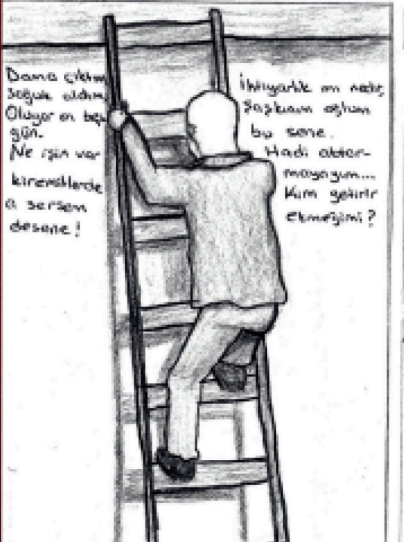 Dama çıktım
soğuk aldım
Oluyor on beş
gün.
Ne işin var
kiremitlerde
a sersem
desene!
İhtiyarlık mı nedir,
Şaşkınım oğlum
bu sene.
Hadi aktar-
mayayım...
Kim getirir
ekmeğimi?